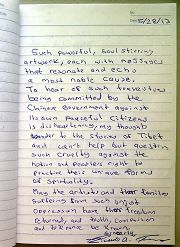 5/28/13
Such powerful, soul stirring
artwork, each with messages
that resonate and echo
a most noble cause.
To hear of such travesties
being committed by the
Chinese Government against
its own peaceful citizens
is disheartening, my thoughts
wander to the stories of Tibet
and can't help but question
such cruelty against the
nation and peoples right to
practice their unique forms
of spirituality.
May the artists and their families
suffering from such unjust
oppression have their freedom
returned and truth, compassion
and tolerance be known